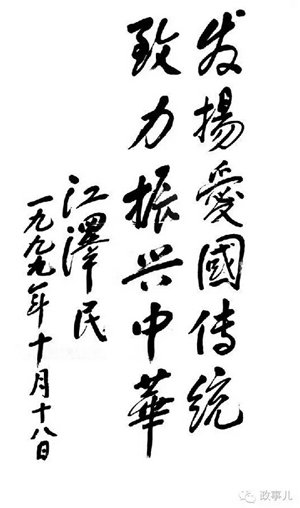 发揚愛國传统
致力振兴中華
江澤民
一九九九年十月十八日
政事儿